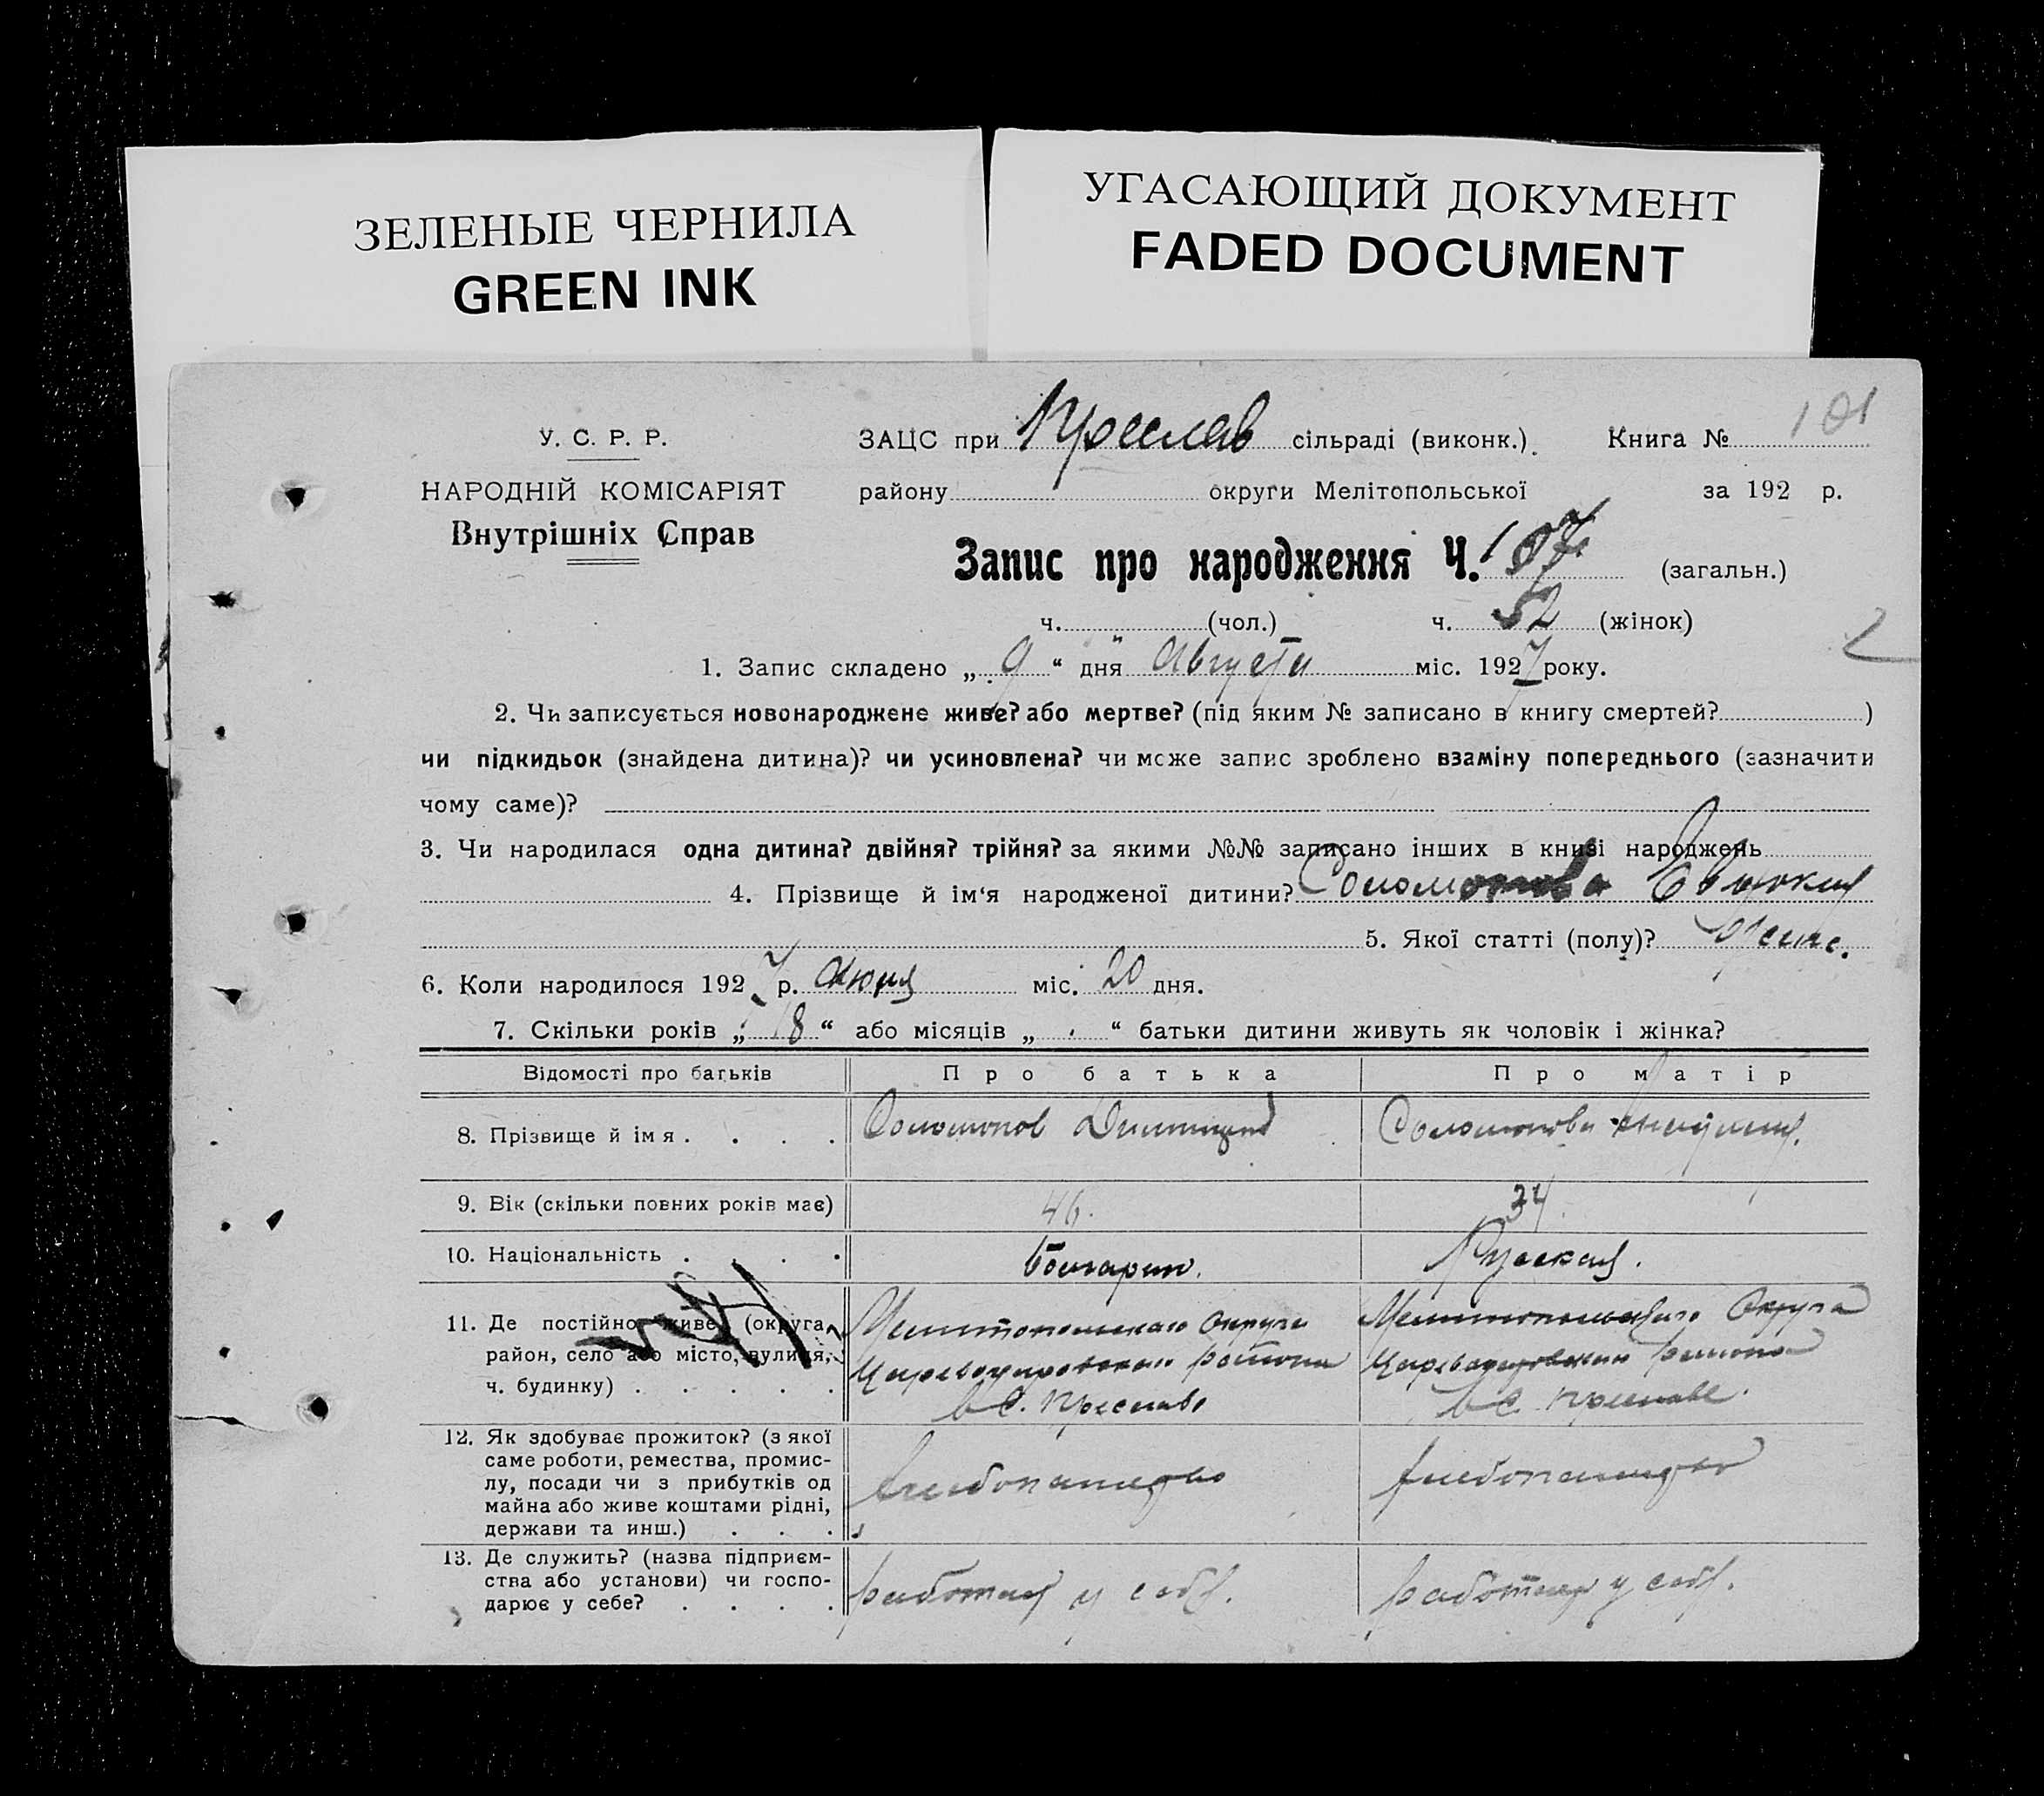 ЗЕЛЕНЫЕ ЧЕРНИЛА
GREEN INK
УГАСАЮЩИЙ ДОКУМЕНТ
FADED DOCUMENT
У. С. Р. Р.
НАРОДНІЙ КОМІСАРІЯТ
Внутрішніх Справ
ЗАЦС при Преслав сільраді (виконк.). Книга № 101
району округи Мелітопольської за 192 р.
Запис про народження Ч. 107 (загальн.)
ч. (чол.) ч. 52 (жінок)
1. Запис складено „ 9 “ дня Августа міс. 1927 року.
2. Чи записується новонароджене живе? або мертве? (під яким № записано в книгу смертей? )
чи підкидьок (знайдена дитина)? чи усиновлена? чи може запис зроблено взаміну попереднього (зазначити
чому саме)?
3. Чи народилася одна дитина? двійня? трійня? за якими №№ записано інших в книзі народжень
4. Прізвище й ім‘я народженої дитини? Соломонова
5. Якої статті (полу)? женс.
6. Коли народилося 1927 р. Июня міс. 20 дня.
7. Скільки років „ 18 “ або місяців „ “ батьки дитини живуть як чоловік і жінка?
Відомості про батьків Про батька Про матір
8. Прізвище й імя . . . . Соломонов Димитрий Соломонова
9. Вік (скільки повних років має) 46. 34
10. Національність . . . . Болгарин. Русская.
11. Де постійно живе (округа, Мелитопольскаго Округа Мелитопольскаго Округа
район, село або місто, вулиця, Царево района района
ч. будинку) . . . . . в С. Преславе в С. Преславе.
12. Як здобуває прожиток? (з якої
саме роботи, ремества, промис-
лу, посади чи з прибутків од хлебопашество хлебопашество
майна або живе коштами рідні,
держави та инш.) . . .
13. Де служить? (назва підприєм-
ства або установи) чи госпо- работает у себя. работает у себя.
дарює у себе? . . . .